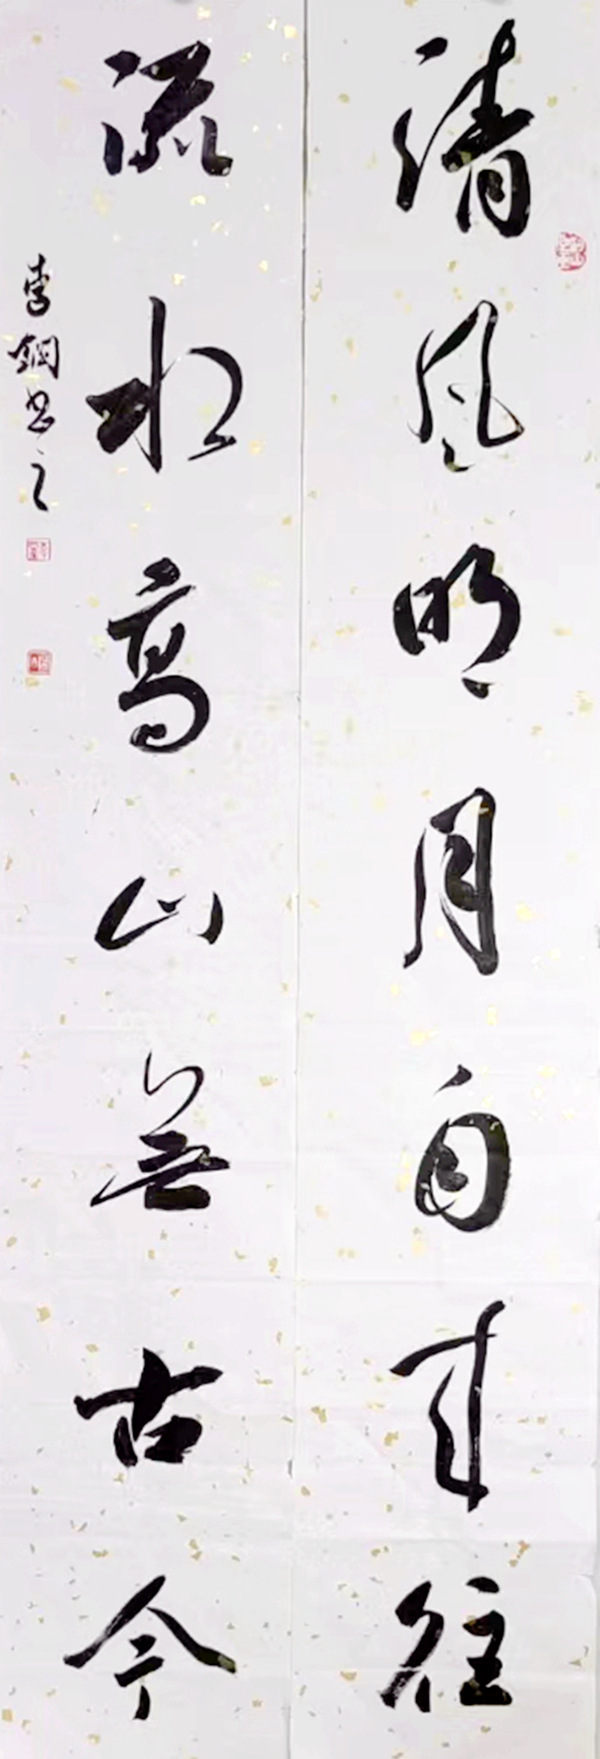 清风明月自来往
流水高山无古今
李钢书之